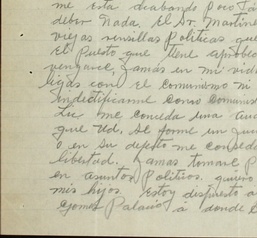 me está acabando poco a
deber nada. El Sr. Martine
viejas rencillas Politicas que
el puesto que tiene aprobec
vengarce, jamas en mi vida
ligas con el comunismo ni
indetificarme como comunist
Lic me conceda una au
que Ud. se forme un jui
o en su defeto me conceda
libertad. Jamas tomaré p
en asuntos Politicos. quiero
mis hijos. Estoy dispuesto a
Gomez Palacio a donde